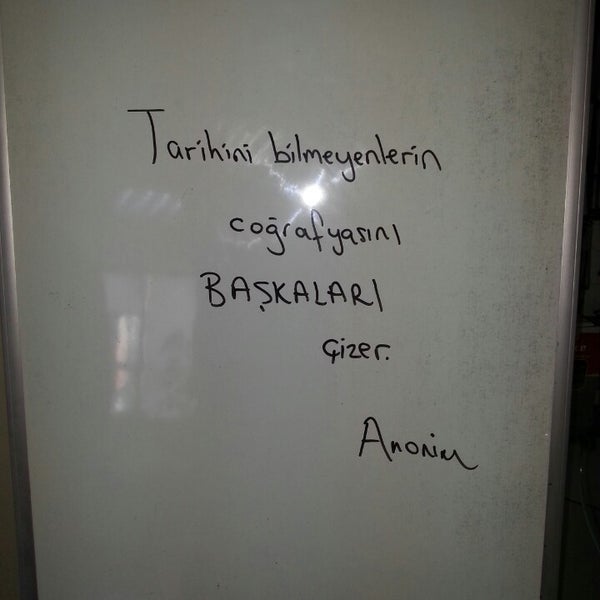 Tarihini bilmeyenlerin
coğrafyasını
BAŞKALARI
çizer.
Anonim